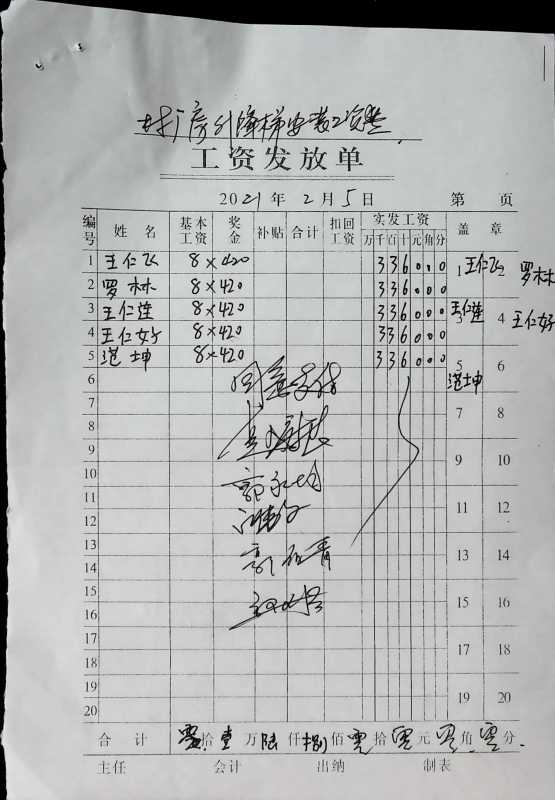 房升降梯安装工资
工资发放单
2021年 2月 5日 第 页
编号 姓名 基本工资 奖金 补贴 合计 扣回工资 实发工资 盖章
万 千 百 十 元 角 分
1 王仁飞 8×420 336000 1 王仁飞 罗林
2 罗林 8×420 336000
3 王仁莲 8×420 336000 王仁莲 3 4 王仁好
4 王仁好 8×420 336000
5 范坤 8×420 336000 5
6 同意支付 范坤 6
7 7 8
8
9 9 10
10
11 11 12
12
13 13 14
14
15 15 16
16
17 17 18
18
19 19 20
20
合计 零拾壹万陆仟捌佰零拾零元零角零分
主任 会计 出纳 制表